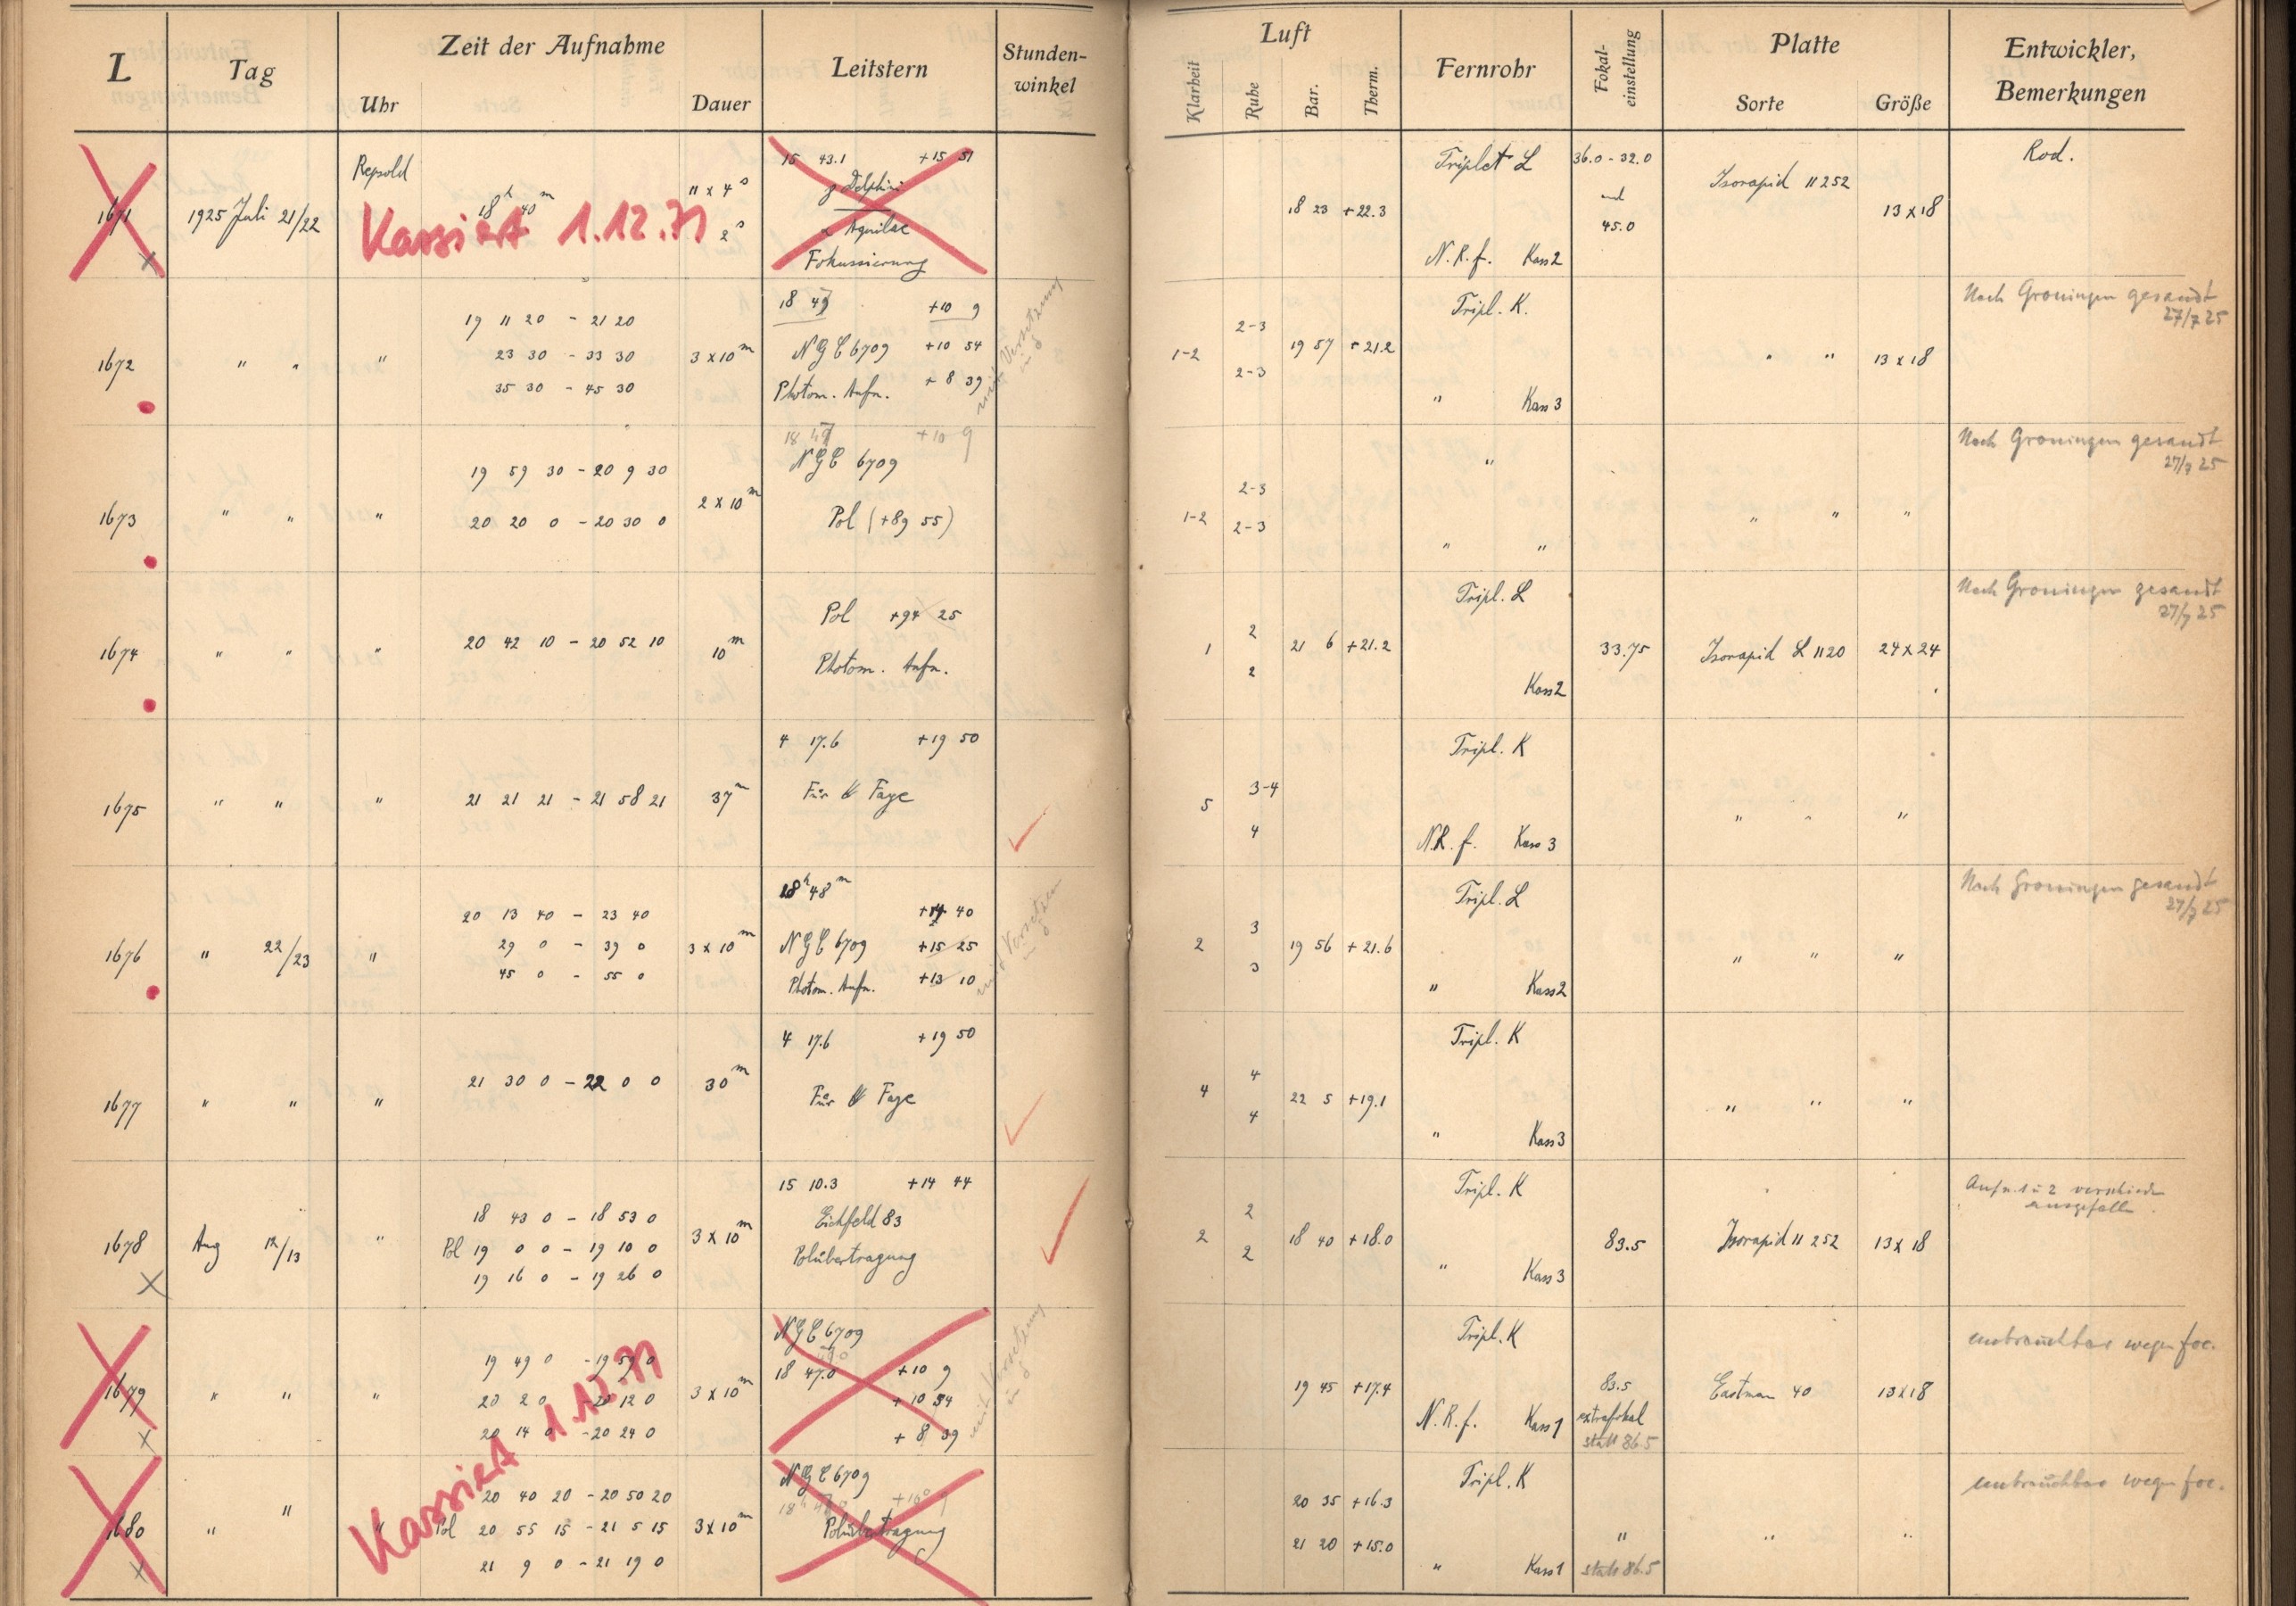 L Tag Zeit der Aufnahme Leitstern Stunden-
winkel
Uhr Dauer
Luft Fernrohr Fokal-
einstellung Platte Entwickler,
Bemerkungen
Klarheit Ruhe Bar. Therm. Sorte Größe
Repsold 15 43.1 +15 51
11 x 4 s
1671 1925 Juli 21/22 18 h 40 m γ Delphini
Kassiert 1.12.71 2 s α Aquilae
Fokussierung
Triplet L 36.0 - 32.0 Rod.
und Isorapid 11252
18 23 +22.3 45.0 13 x 18
N.R.f. Kass 2
18 49 +10 9
19 11 20 - 21 20
23 30 - 33 30 NGC 6709 +10 54
1672 " " " 3 x 10 m
35 30 - 45 30 Photom. Aufn. + 8 39
mit Versetzung
in δ
Tripl. K. Nach Groningen gesandt
27/7 25
2-3
1-2 19 57 +21.2 " " 13 x 18
2-3
" Kass 3
18 47 +10 9
NGC 6709
19 59 30 - 20 9 30
1673 " " " 2 x 10 m
20 20 0 - 20 30 0 Pol (+89 55)
" Nach Groningen gesandt
27/7 25
2-3
1-2 " " "
2-3
" "
Pol +94 25
1674 " " " 20 42 10 - 20 52 10 10 m
Photom. Aufn.
Tripl. L Nach Groningen gesandt
27/7 25
2
1 21 6 +21.2 33.75 Isorapid L 1120 24 x 24
2
Kass 2
4 17.6 +19 50
1675 " " " 21 21 21 - 21 58 21 37 m Für Faye
Tripl. K
3-4
5 " " "
4
N.R.f. Kass 3
18 h 48 m
20 13 40 - 23 40 +14 40
1676 " 22/23 " 29 0 - 39 0 3 x 10 m NGC 6709 +15 25
45 0 - 55 0 Photom. Aufn. +13 10
mit Versetzen
in δ
Tripl. L Nach Groningen gesandt
27/7 25
3
2 19 56 +21.6 " " "
3
" Kass 2
4 17.6 +19 50
21 30 0 - 22 0 0 30 m
1677 " " " Für Faye
Tripl. K
4
4 22 5 +19.1 " " "
4
" Kass 3
15 10.3 +14 44
18 43 0 - 18 53 0 Eichfeld 83
1678 Aug 12/13 " Pol 19 0 0 - 19 10 0 3 x 10 m Polübertragung
19 16 0 - 19 26 0
Tripl. K Aufn. 1 u 2 verschieden
ausgefallen.
2
2 18 40 +18.0 83.5 Isorapid 11252 13 x 18
2
" Kass 3
NGC 6709
19 49 0 - 19 59 0 18 47.0 +10 9
1679 " " " 20 2 0 - 20 12 0 3 x 10 m +10 54
20 14 0 - 20 24 0 + 8 39
mit Versetzung
in δ
Tripl. K unbrauchbar wegen foc.
19 45 +17.4 83.5 Eastman 40 13 x 18
N.R.f. Kass 1 extrafokal
statt 86.5
Kassiert 1.12.71
NGC 6709
20 40 20 - 20 50 20
1680 " " " Pol 20 55 15 - 21 5 15 3 x 10 m Polübertragung
21 9 0 - 21 19 0
Tripl. K unbrauchbar wegen foc.
20 35 +16.3
21 20 +15.0 " " "
" Kass 1 statt 86.5